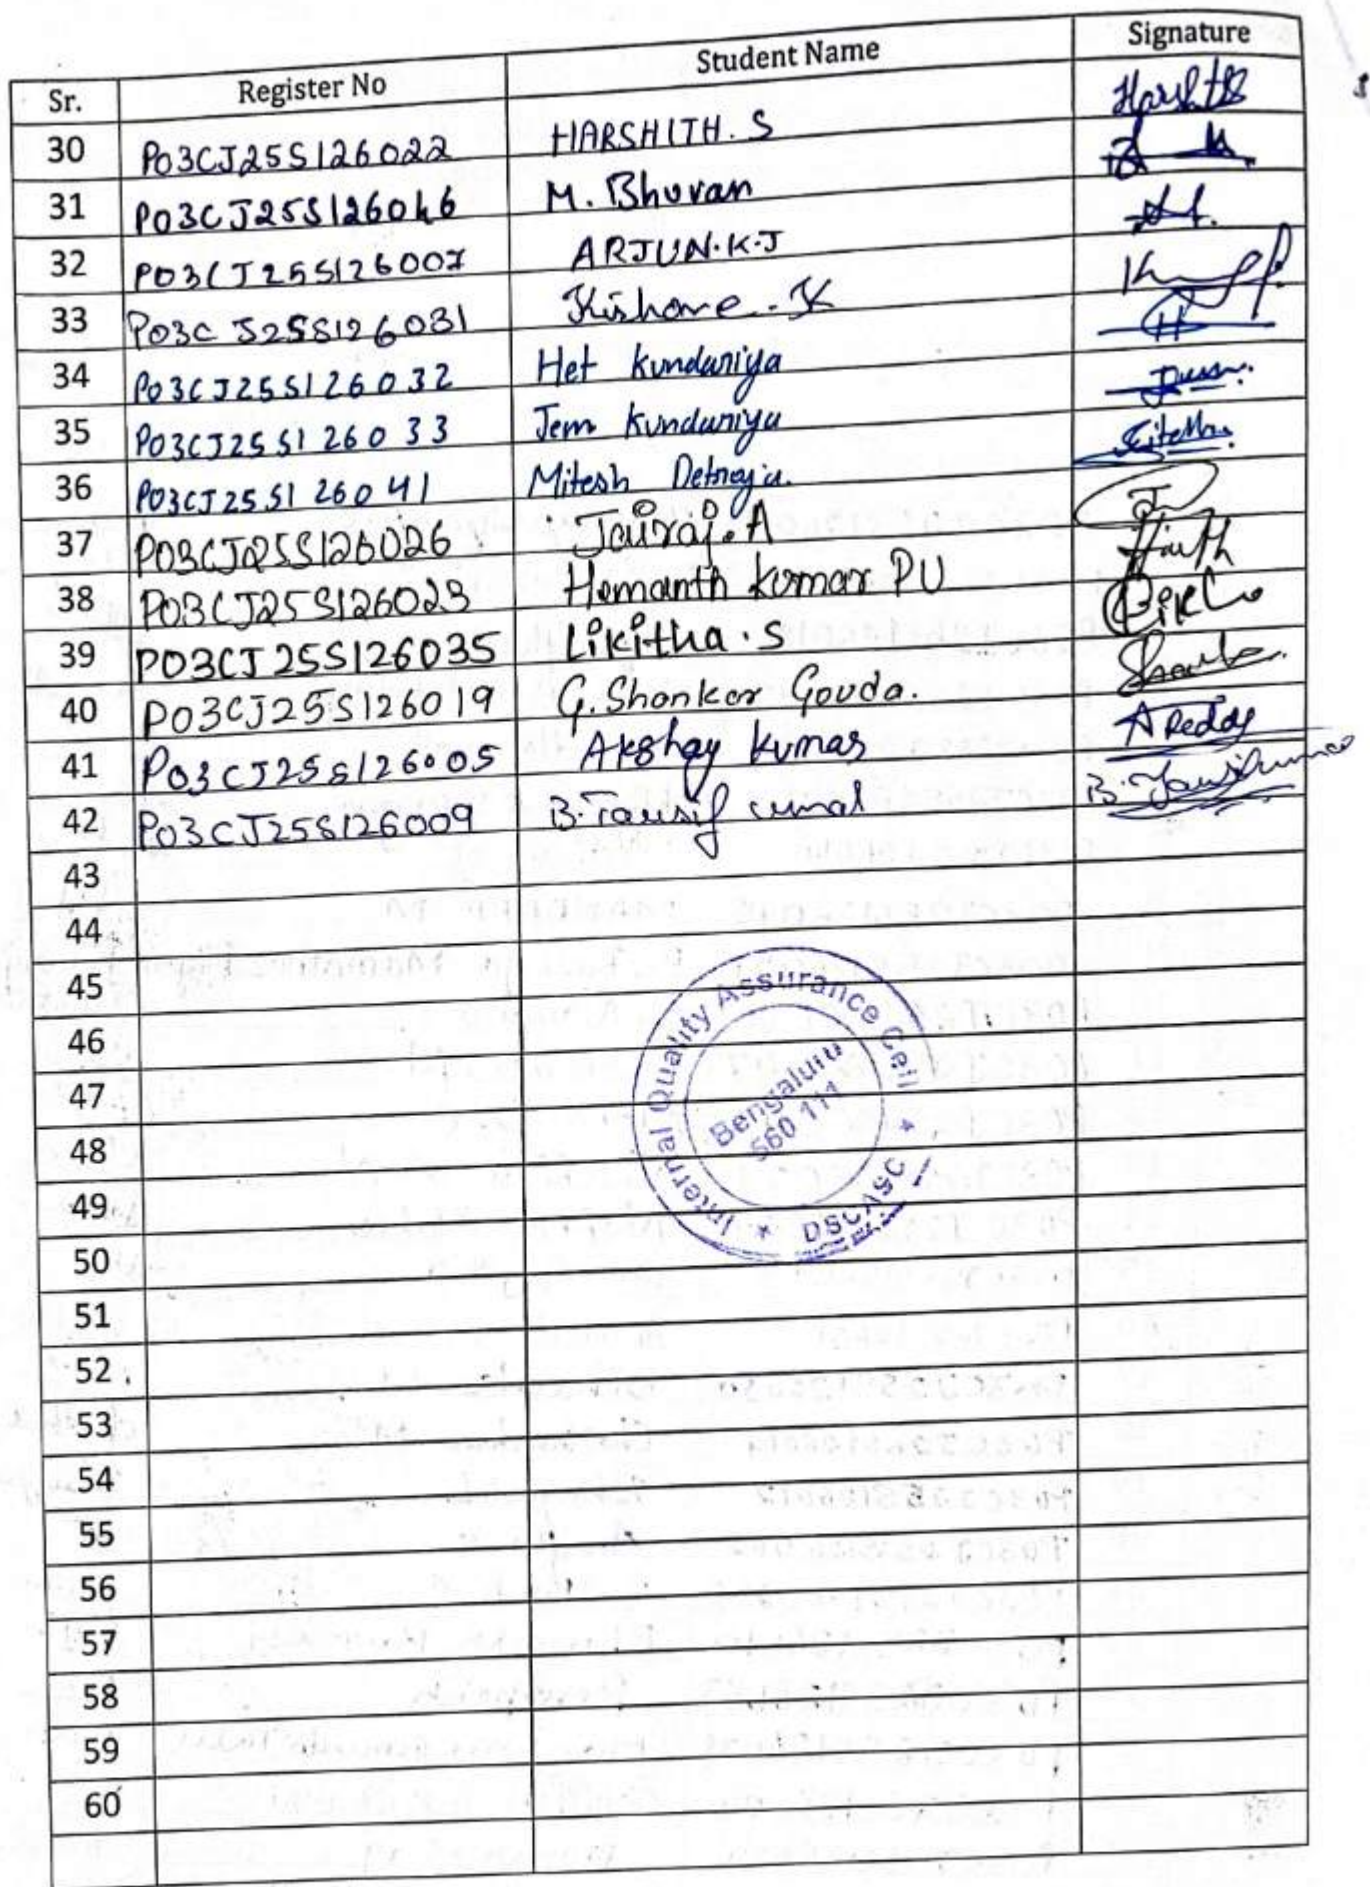 Sr. Register No Student Name Signature
30 P03CJ25S126022 HARSHITH. S Harshith S
31 P03CJ25S126046 M. Bhuvan
32 P03CJ25S126007 ARJUN.K.J
33 P03CJ25S126031 Kishore. K
34 P03CJ25S126032 Het Kundariya
35 P03CJ25S126033 Jem Kundariya
36 P03CJ25S126041 Mitesh Detroja
37 P03CJ25S126026 Jairaj.A
38 P03CJ25S126023 Hemanth Kumar PU
39 P03CJ25S126035 Likitha.S
40 P03CJ25S126019 G. Shankar Gouda.
41 P03CJ25S126005 Akshay Kumar A Reddy
42 P03CJ25S126009 B.Tausif
43
44
45
46
47
48
49
50
51
52
53
54
55
56
57
58
59
60
Internal Quality Assurance Cell
Bengaluru
560 111
* DSCASC *